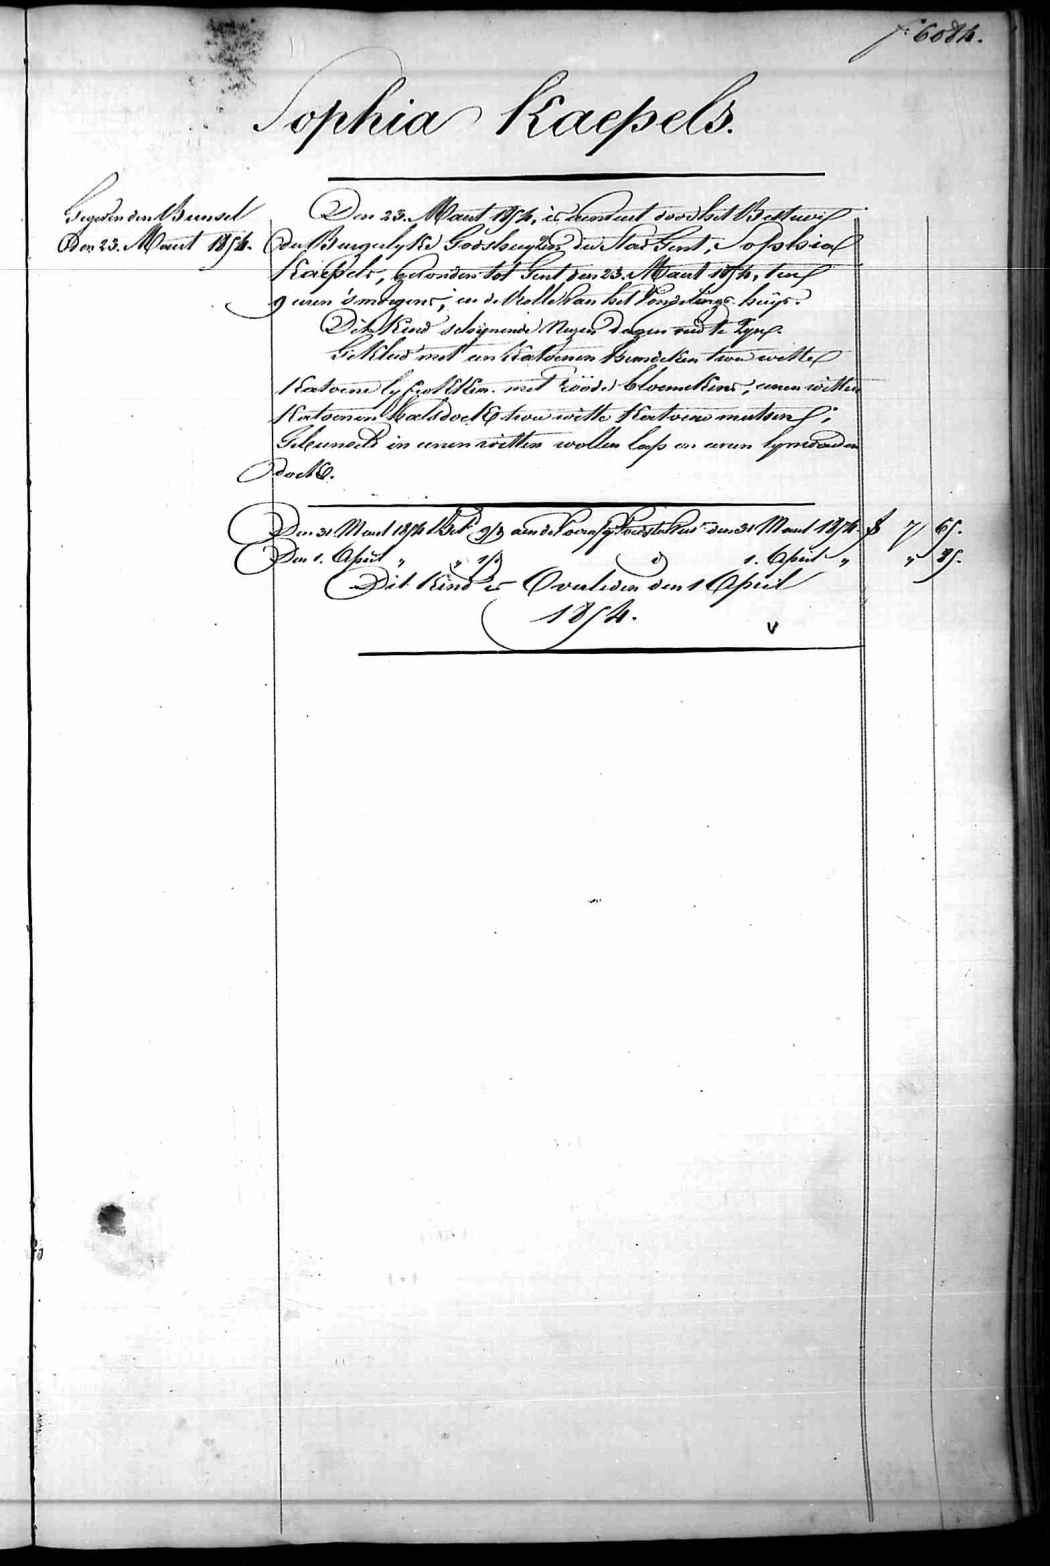 f.° 6084.
Sophia Kaepels.
Gegeven den Bunsel
Den 23. Maert 1854.
Den 23. Maert 1854, is aenveert door het Bestuer
der Burgerlyke Godshuyzen der Stad Gent, Sophia
Kaepels, gevonden tot Gent den 23. Maert 1854, ten
9 uren 's morgens, in de Rolle van het Vondelings-huys.
Dit Kind schynende Negen dagen oud te zyn.
Gekleed met een Katoenen hemdeken twee witte
Katoene lyfrokskens met roode bloemekens, eenen witten
Katoenen halsdoek twee witte Katoene mutsen;
Gebunseld in eenen witten wollen lap en eenen lynwaeden
doek.
Den 31 Maert 1854 Bet.d 9/3 aen de Voedster den 31 Maert 1854. f 7 65.
Den 1. April " " 1/3 d.° 1. April " " 85.
Dit Kind is Overleden den 1 April
1854.
V